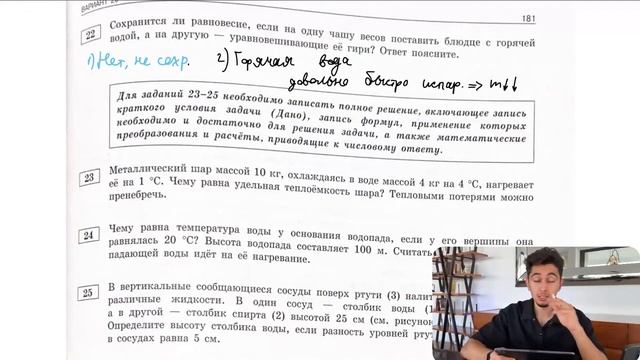 ВАРИАНТ 20
181
22 Сохранится ли равновесие, если на одну чашу весов поставить блюдце с горячей
водой, а на другую — уравновешивающие её гири? Ответ поясните.
1) Нет, не сохр. 2) Горячая вода
довольно быстро испар. ⇒ m↓↓
Для заданий 23–25 необходимо записать полное решение, включающее запись
краткого условия задачи (Дано), запись формул, применение которых
необходимо и достаточно для решения задачи, а также математические
преобразования и расчёты, приводящие к числовому ответу.
23 Металлический шар массой 10 кг, охлаждаясь в воде массой 4 кг на 4 °С, нагревает
её на 1 °С. Чему равна удельная теплоёмкость шара? Тепловыми потерями можно
пренебречь.
24 Чему равна температура воды у основания водопада, если у его вершины она
равнялась 20 °С? Высота водопада составляет 100 м. Считать
падающей воды идёт на её нагревание.
25 В вертикальные сообщающиеся сосуды поверх ртути (3) налит
различные жидкости. В один сосуд — столбик воды (1
а в другой — столбик спирта (2) высотой 25 см (см. рисунок
Определите высоту столбика воды, если разность уровней ртут
в сосудах равна 5 см.